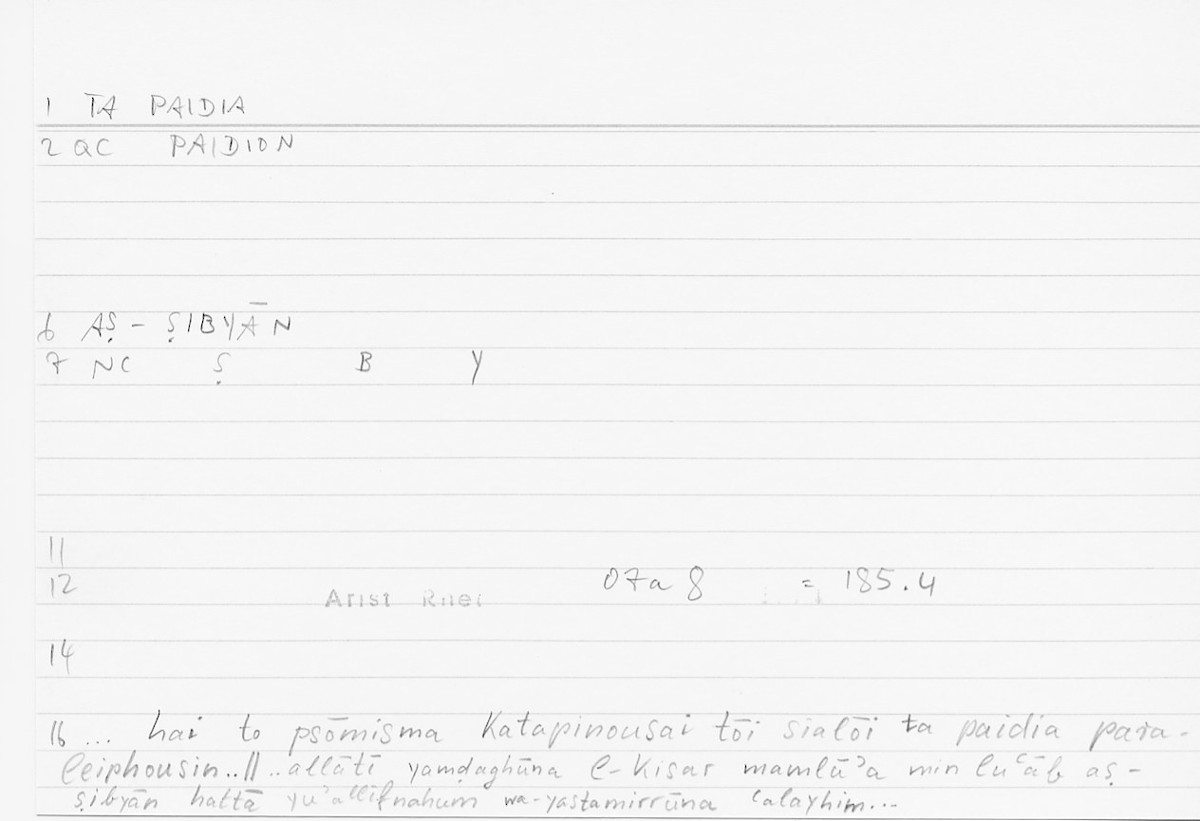 1 TA PAIDIA
2 QC PAIDION
6 AṢ - ṢIBYĀN
7 NC Ṣ B Y
11
12 Arist Rhet 07a 8 = 185.4
14
16 ... hai to psōmisma katapinousai tōi sialōi ta paidia para-
leiphousin..||..allātī yamḍaghūna l-kisar mamlūʾa min luʿāb aṣ-
ṣibyān hattā yuʾallifnahum wa-yastamirrūna ʿalayhim...